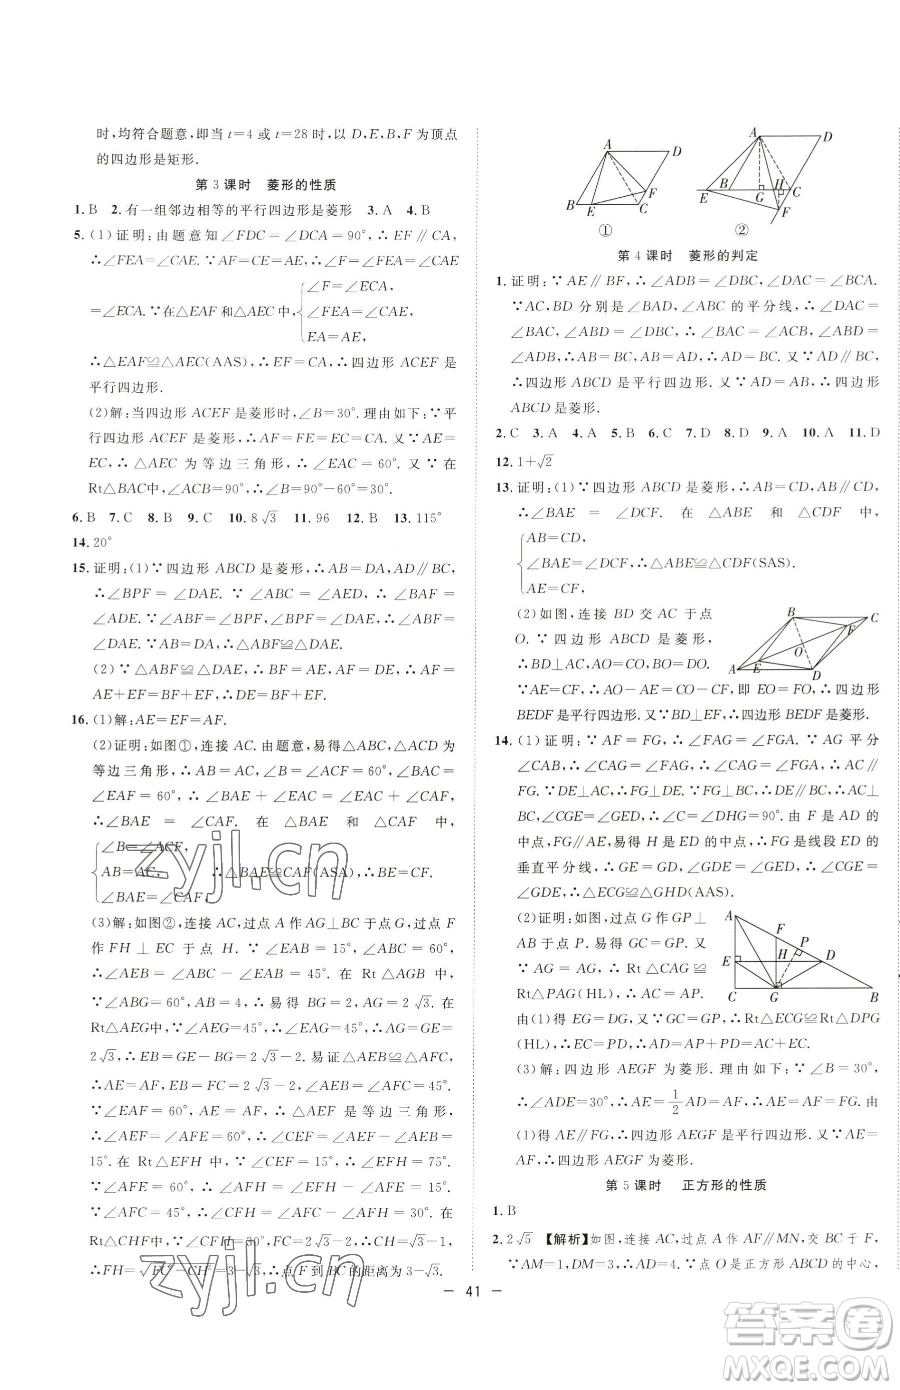 时,均符合题意,即当 t=4 或 t=28 时,以 D,E,B,F 为顶点
的四边形是矩形.
第 3 课时　菱形的性质
1. B　2. 有一组邻边相等的平行四边形是菱形　3. A　4. B
5. (1)证明:由题意知∠FDC=∠DCA=90°,∴EF∥CA,
∴∠FEA=∠CAE. ∵AF=CE=AE,∴∠F=∠FEA
=∠CAE=∠ECA. 在△EAF 和△AEC 中,
∠F=∠ECA,
∠FEA=∠CAE,
EA=AE,
∴△EAF≌△AEC(AAS),∴EF=CA,∴四边形 ACEF 是
平行四边形.
(2)解:当四边形 ACEF 是菱形时,∠B=30°. 理由如下:∵平
行四边形 ACEF 是菱形,∴AC=AF. 又∵CE=AF=AE=
EC,∴△AEC 为等边三角形,∴∠EAC=60°. 又∵在
Rt△BAC中,∠BAC=90°,∴∠B=90°-60°=30°.
6. B　7. C　8. B　9. C　10. 8√3　11. 96　12. B　13. 115°
14. 20°
15. 证明:(1)∵四边形 ABCD 是菱形,∴AB=DA,AD∥BC,
∴∠BPF=∠DAE. ∵∠ABC=∠AED,∴∠BAF=
∠ADE. ∵∠ABF=∠BPF,∠BPF=∠DAE,∴∠ABF=
∠DAE. ∵AB=DA,∴△ABF≌△DAE.
(2)∵△ABF≌△DAE,∴AE=BF,DE=AF. ∵AF=
AE+EF=BF+EF,∴DE=BF+EF.
16. (1)解:AE=EF=AF.
(2)证明:如图①,连接 AC. 由题意,易得△ABC,△ACD为
等边三角形,∴AB=AC,∠ACF=∠B=60°,∠BAC=
∠EAF=60°,∴∠BAE+∠EAC=∠EAC+∠CAF,
∴∠BAE=∠CAF. 在△BAE 和△CAF 中,
∠B=∠ACF,
AB=AC,　∴△BAE≌△CAF(ASA),∴BE=CF.
∠BAE=∠CAF,
(3)解:如图②,连接 AC,过点 A 作AG⊥BC 于点 G,过点 F
作 FH⊥EC 于点 H. ∵∠EAB=15°,∠ABC=60°,
∴∠AEB=∠ABC-∠EAB=45°. 在 Rt△AGB 中,
∵∠ABG=60°,AB=4,∴易得 BG=2,AG=2√3. 在
Rt△AEG中,∵∠AEG=∠EAG=45°,∴AG=GE=
2√3,∴EB=EG-BG=2√3-2. 易证△AEB≌△AFC,
∴AE=AF,EB=FC=2√3-2,∠AEB=∠AFC=45°.
∵∠EAF=60°,AE=AF,∴△AEF 是等边三角形,
∴∠AEF=∠AFE=60°. ∵∠AEB=45°,∴∠FEH=∠AEF-∠AEB=
15°. 在 Rt△EFH 中,∴∠EFH=75°.
∵∠AFE=60°,∴∠AFH=∠EFH-∠AFE=15°.
∵∠AFC=45°,∴∠CFH=∠AFC-∠AFH=30°. 在
Rt△CHF 中,∵∠CFH=30°,CF=2√3-2,∴CH=√3-1,
∴FH=√(FC²-CH²)=3-√3,∴点 F 到BC 的距离为3-√3.
A D B E C F
①
A D E B G H C F
②
第 4 课时　菱形的判定
1. 证明:∵AE∥BF,∴∠ADB=∠DBC,∠DAC=∠BCA.
∵AC,BD 分别是∠BAD,∠ABC 的平分线,∴∠DAC=
∠BAC,∠ABD=∠DBC,∴∠BAC=∠ACB,∠ABD=
∠ADB,∴AB=BC,AB=AD,∴AD=BC. 又∵AD∥BC,
∴四边形 ABCD 是平行四边形. 又∵AD=AB,∴四边形
ABCD 是菱形.
2. C　3. A　4. B　5. B　6. C　7. D　8. D　9. A　10. A　11. D
12. 1+√2
13. 证明:(1)∵四边形 ABCD 是菱形,∴AB=CD,AB∥CD,
∴∠BAE=∠DCF. 在△ABE 和△CDF 中,
AB=CD,
∠BAE=∠DCF,∴△ABE≌△CDF(SAS).
AE=CF,
(2)如图,连接 BD 交 AC 于点
O. ∵四边形 ABCD 是菱形,
∴BD⊥AC,AO=CO,BO=DO.
B C F O A E D
∵AE=CF,∴AO-AE=CO-CF,即 EO=FO,∴四边形
BEDF 是平行四边形. 又∵BD⊥EF,∴四边形 BEDF 是菱形.
14. (1)证明:∵AF=FG,∴∠FAG=∠FGA. ∵AG 平分
∠CAB,∴∠CAG=∠FAG,∴∠CAG=∠FGA,∴AC∥
FG. ∵DE⊥AC,∴FG⊥DE. ∵FG⊥BC,∴DE∥BC,∴AC⊥
BC,∠CGE=∠GED,∴∠C=∠DHG=90°. 由 F 是 AD 的
中点,FG∥AE,易得 H 是 ED 的中点,∴FG是线段 ED 的
垂直平分线,∴GE=GD,∴∠GDE=∠GED,∴∠CGE=
∠GDE,∴△ECG≌△GHD(AAS).
(2)证明:如图,过点 G 作 GP⊥
AB 于点 P. 易得 GC=GP. 又
∵AG=AG,∴Rt△CAG≌
Rt△PAG(HL),∴AC=AP.
A F P E H D C G B
由(1)得 EG=DG,又∵GC=GP,∴Rt△ECG≌Rt△DPG
(HL),∴EC=PD,∴AD=AP+PD=AC+EC.
(3)解:四边形 AEGF 为菱形. 理由如下:∵∠B=30°,
∴∠ADE=30°,∴AE=1/2AD,∴AE=AF=FG. 由
(1)得 AE∥FG,∴四边形 AEGF 是平行四边形. 又∵AE=
AF,∴四边形 AEGF 为菱形.
第 5 课时　正方形的性质
1. B
2. 2√5　【解析】如图,连接AC,过点 A 作AF∥MN,交 BC于 F,
∵AM=1,DM=3,∴AD=4. ∵点 O 是正方形 ABCD 的中心,
41
zyjl.cn
zyjl.cn
答案圈
MXQE.COM